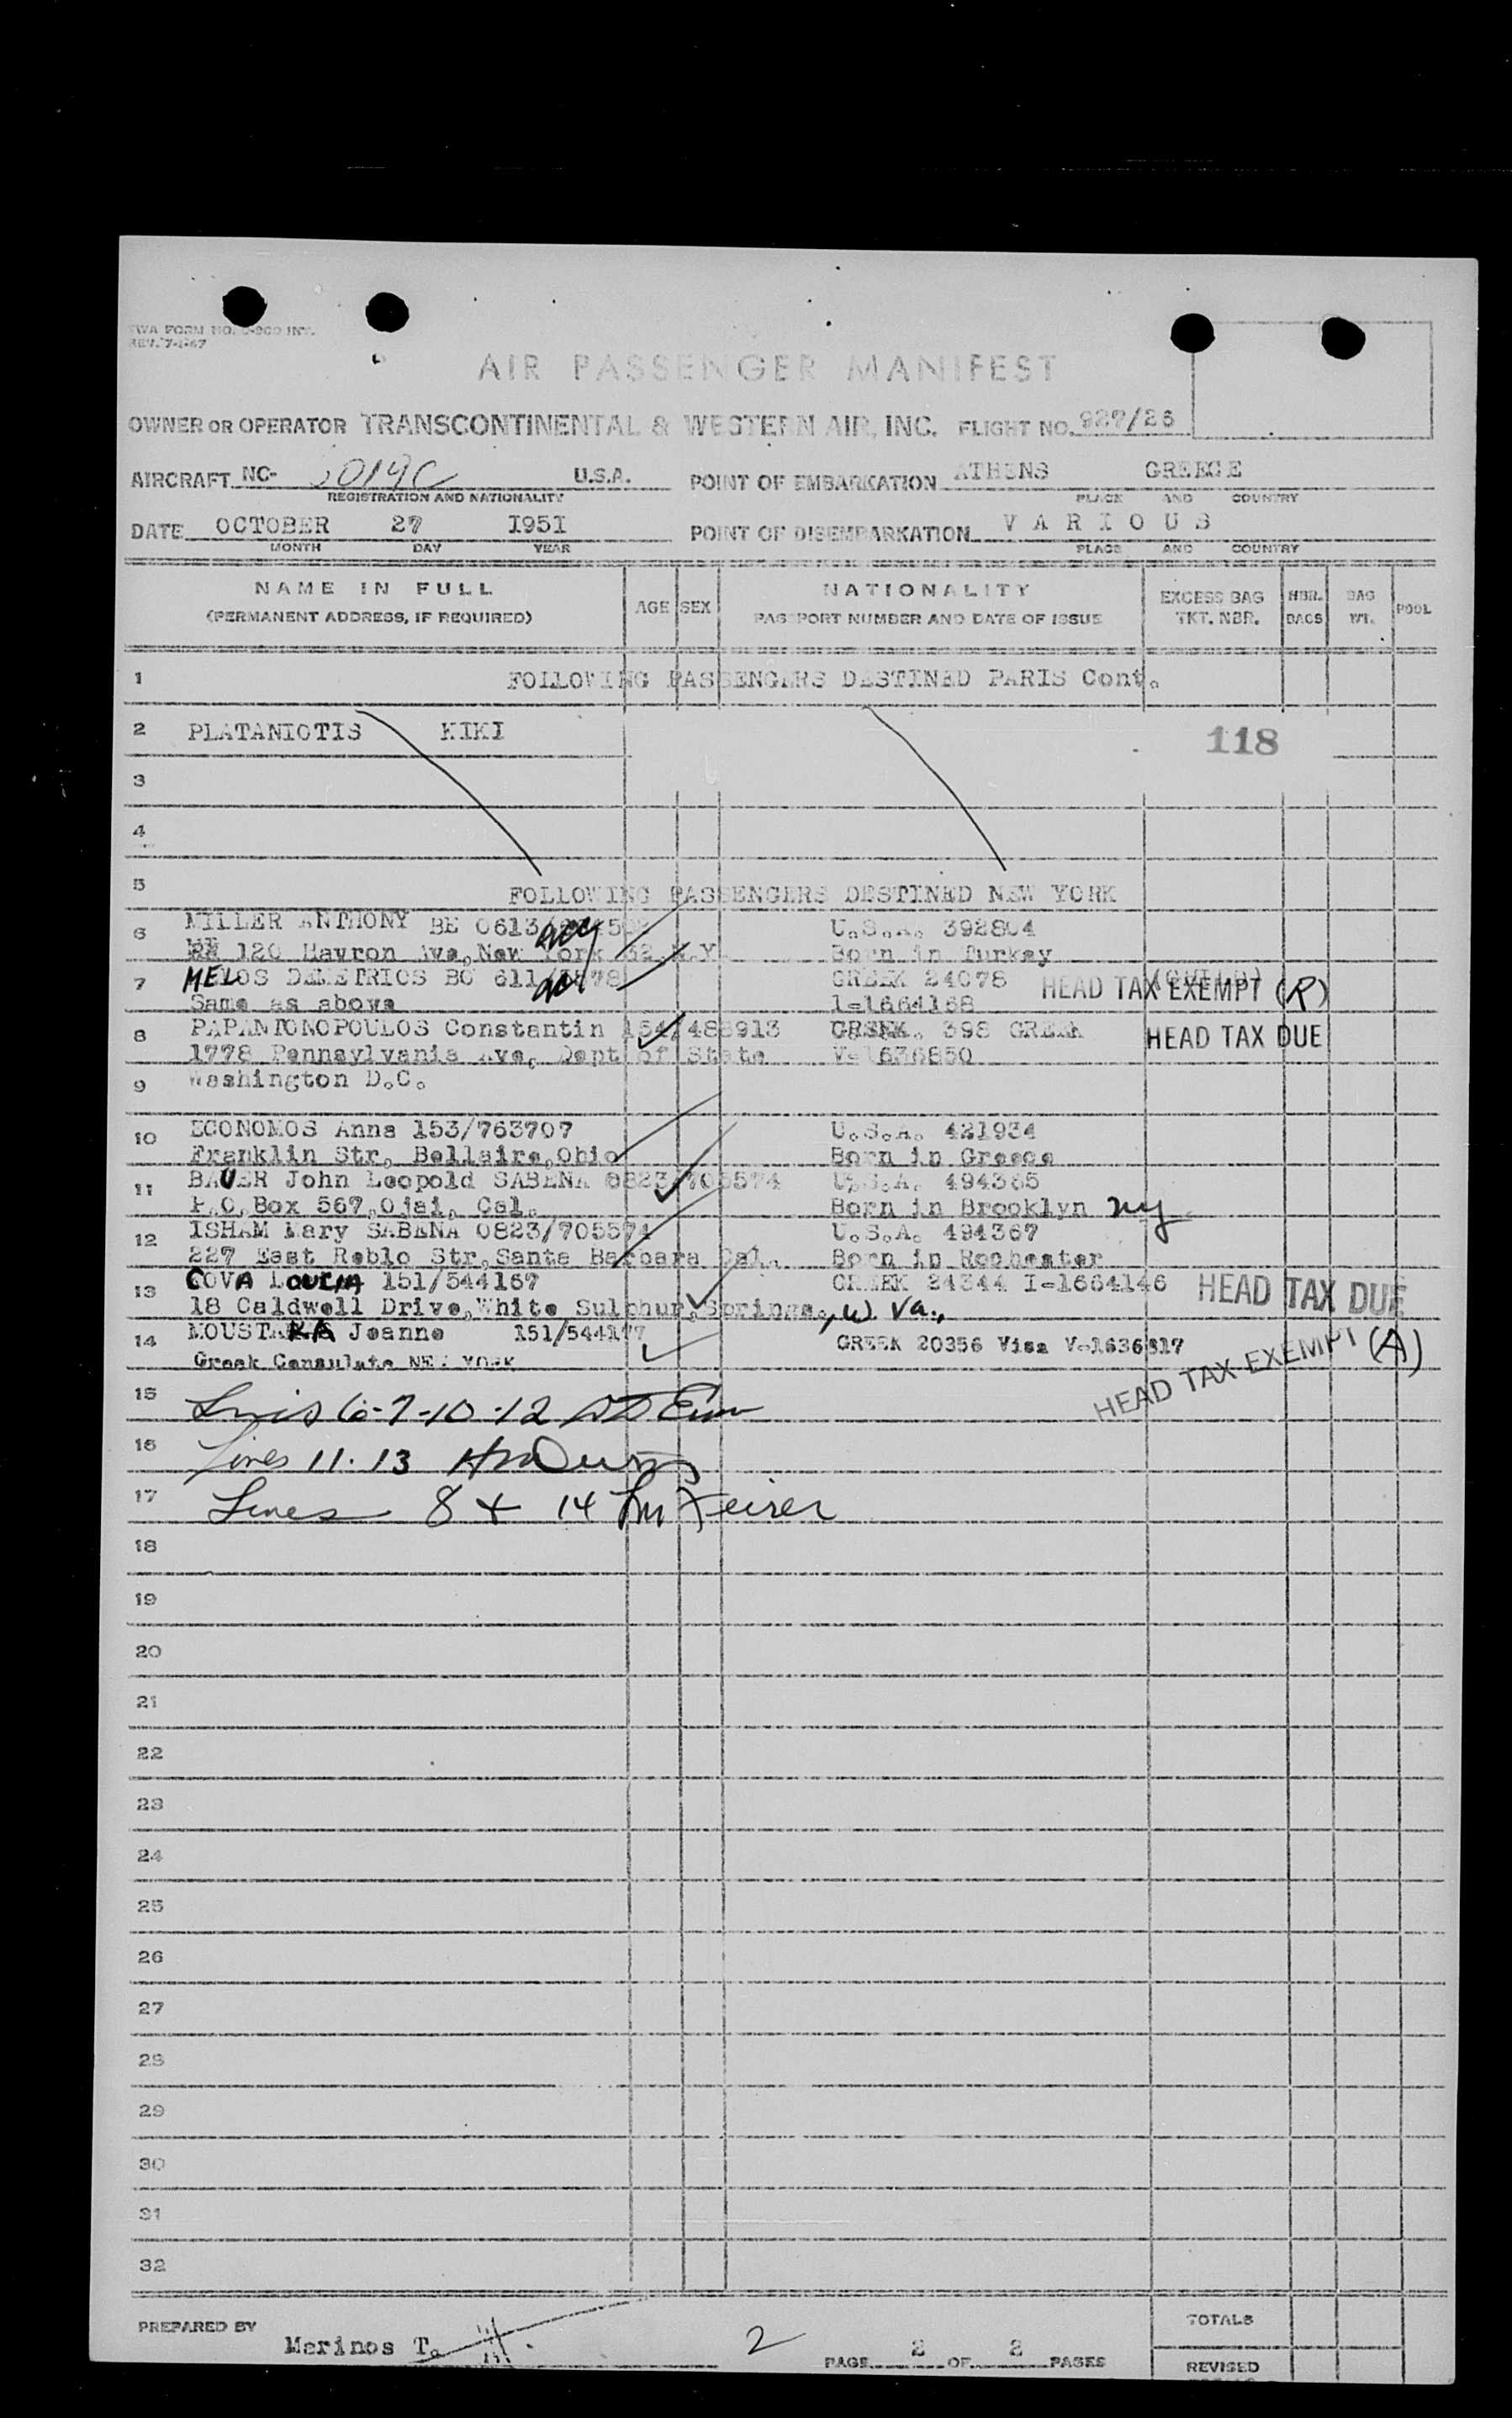 REV. 7-1-47
AIR PASSENGER MANIFEST
OWNER OR OPERATOR TRANSCONTINENTAL & WESTERN AIR, INC. FLIGHT NO. 927/26
AIRCRAFT NC- U.S.A. POINT OF EMBARKATION ATHENS GREECE
REGISTRATION AND NATIONALITY PLACE AND COUNTRY
DATE OCTOBER 27 I95I POINT OF DISEMBARKATION V A R I O U S
MONTH DAY YEAR PLACE AND COUNTRY
NAME IN FULL
(PERMANENT ADDRESS, IF REQUIRED)
AGE SEX
NATIONALITY
PASSPORT NUMBER AND DATE OF ISSUE
EXCESS BAG
TKT. NBR.
NBR.
BAGS
BAG
WT.
POOL
1 FOLLOWING PASSENGERS DESTINED PARIS Cont.
2 PLATANIOTIS KIKI 118
3
4
5 FOLLOWING PASSENGERS DESTINED NEW YORK
6 MILLER ANTHONY BE 0613/ U.S.A. 392804
120 Ave, New York 32 N.Y. Born in Turkey
7 MELOS DEMETRIOS BO 611/ GREEK 24078 HEAD TAX EXEMPT (R)
Same as above 1-1664168
8 PAPANTONOPOULOS Constantin 154/488913 GREEK HEAD TAX DUE
1778 Pennsylvania Ave, Dept of State V-1636850
9 Washington D.C.
10 ECONOMOS Anna 153/763707 U.S.A. 421934
Franklin Str, Bellaire, Ohio Born in Greece
11 BAUER John Leopold SABENA 0823/705574 U.S.A. 494365
P.O. Box 567, Ojai, Cal. Born in Brooklyn ny
12 ISHAM Mary SABENA 0823/705574 U.S.A. 494367
227 East Reblo Str, Santa Barbara Cal. Born in Rochester
13 COVA LOUCIA 151/544167 GREEK 24344 I-1664146 HEAD TAX DUE
18 Caldwell Drive, White Sulphur, Springs, W. Va.,
14 MOUSTAKA Joanne 151/544177 GREEK 20356 Visa V-1636817
Greek Consulate NEW YORK HEAD TAX EXEMPT (A)
15 6-7-10-12
16 Lines 11-13
17 Lines 8 + 14
18
19
20
21
22
23
24
25
26
27
28
29
30
31
32
PREPARED BY Marinos T.
2
PAGE 2 OF 2 PAGES
TOTALS
REVISED